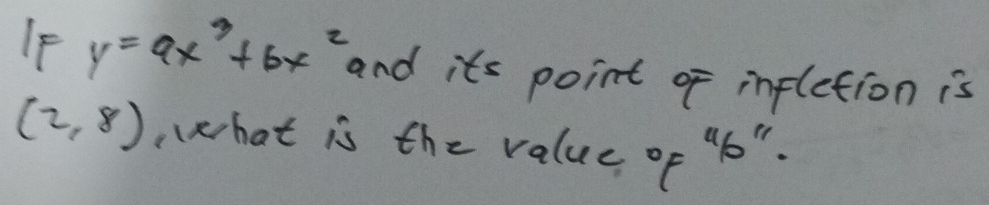 If y=ax³+bx² and its point of infletion is
(2,8), what is the value of "b".